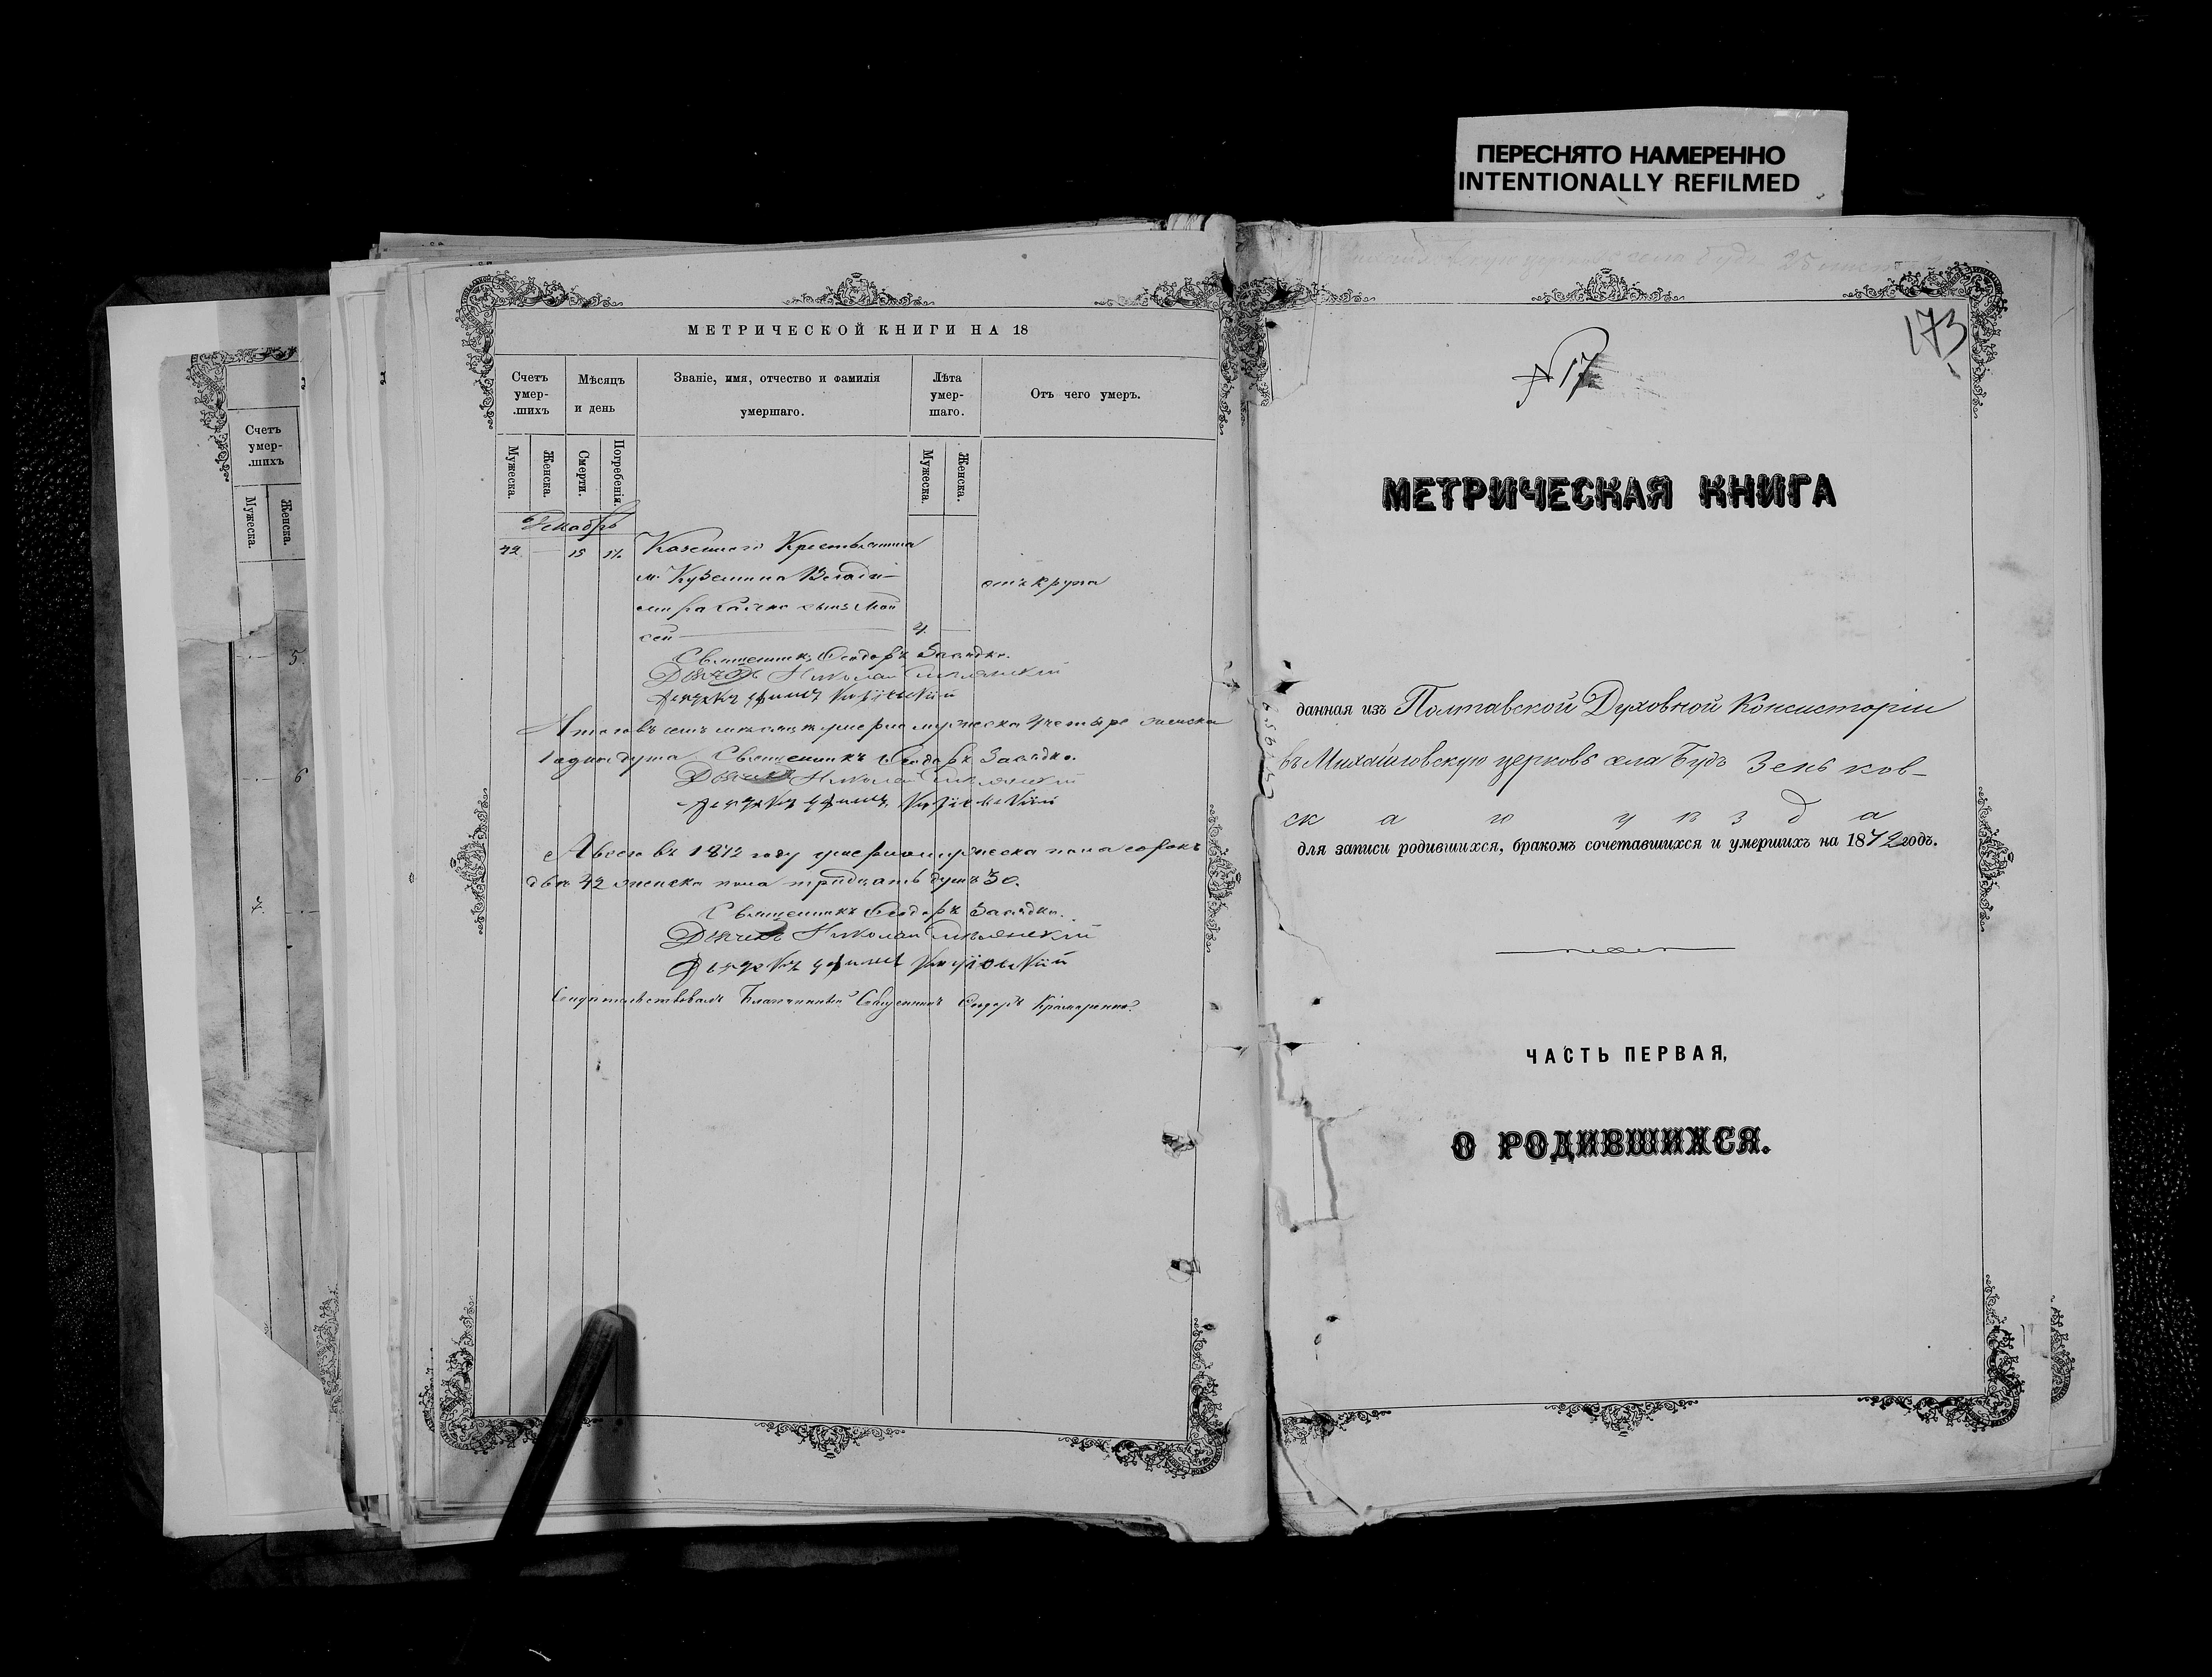 ПЕРЕСНЯТО НАМЕРЕННО
INTENTIONALLY REFILMED
Счетъ
умер-
шихъ
Мужеска.
Женска.
5
6
7.
МЕТРИЧЕСКОЙ КНИГИ НА 18
Счетъ умер-шихъ
Мѣсяцъ и день
Званіе, имя, отчество и фамилія умершаго.
Лѣта умер-шаго.
Отъ чего умеръ.
Мужеска.
Женска.
Смерти.
Погребенія.
Мужеска.
Женска.
Декабрь
42 15 Казеннаго Крестьянина
м. Куземина Влади-
мира сынъ Мой отъ крупа
сей 4.
Священникъ Ѳеодоръ Засядко.
Дьячокъ Николай
Итого въ семъ мѣсяцѣ умерло мужеска 4 четыре женска
1 одна душа Священникъ Ѳеодоръ Засядко.
Николай
А всего въ 1872 году умерло мужеска пола сорокъ
два 42 женска пола тридцать душъ 30.
Священникъ Ѳеодоръ Засядко.
Николай
Свидѣтельствовалъ Благочинный Священникъ Ѳеодоръ
села Будъ 25
173
N 17
МЕТРИЧЕСКАЯ КНИГА
данная изъ Полтавской Духовной Консисторіи
въ Михайловскую церковь села Будъ Зеньков-
скаго уѣзда
для записи родившихся, бракомъ сочетавшихся и умершихъ на 1872 годъ.
ЧАСТЬ ПЕРВАЯ,
О РОДИВШИХСЯ.